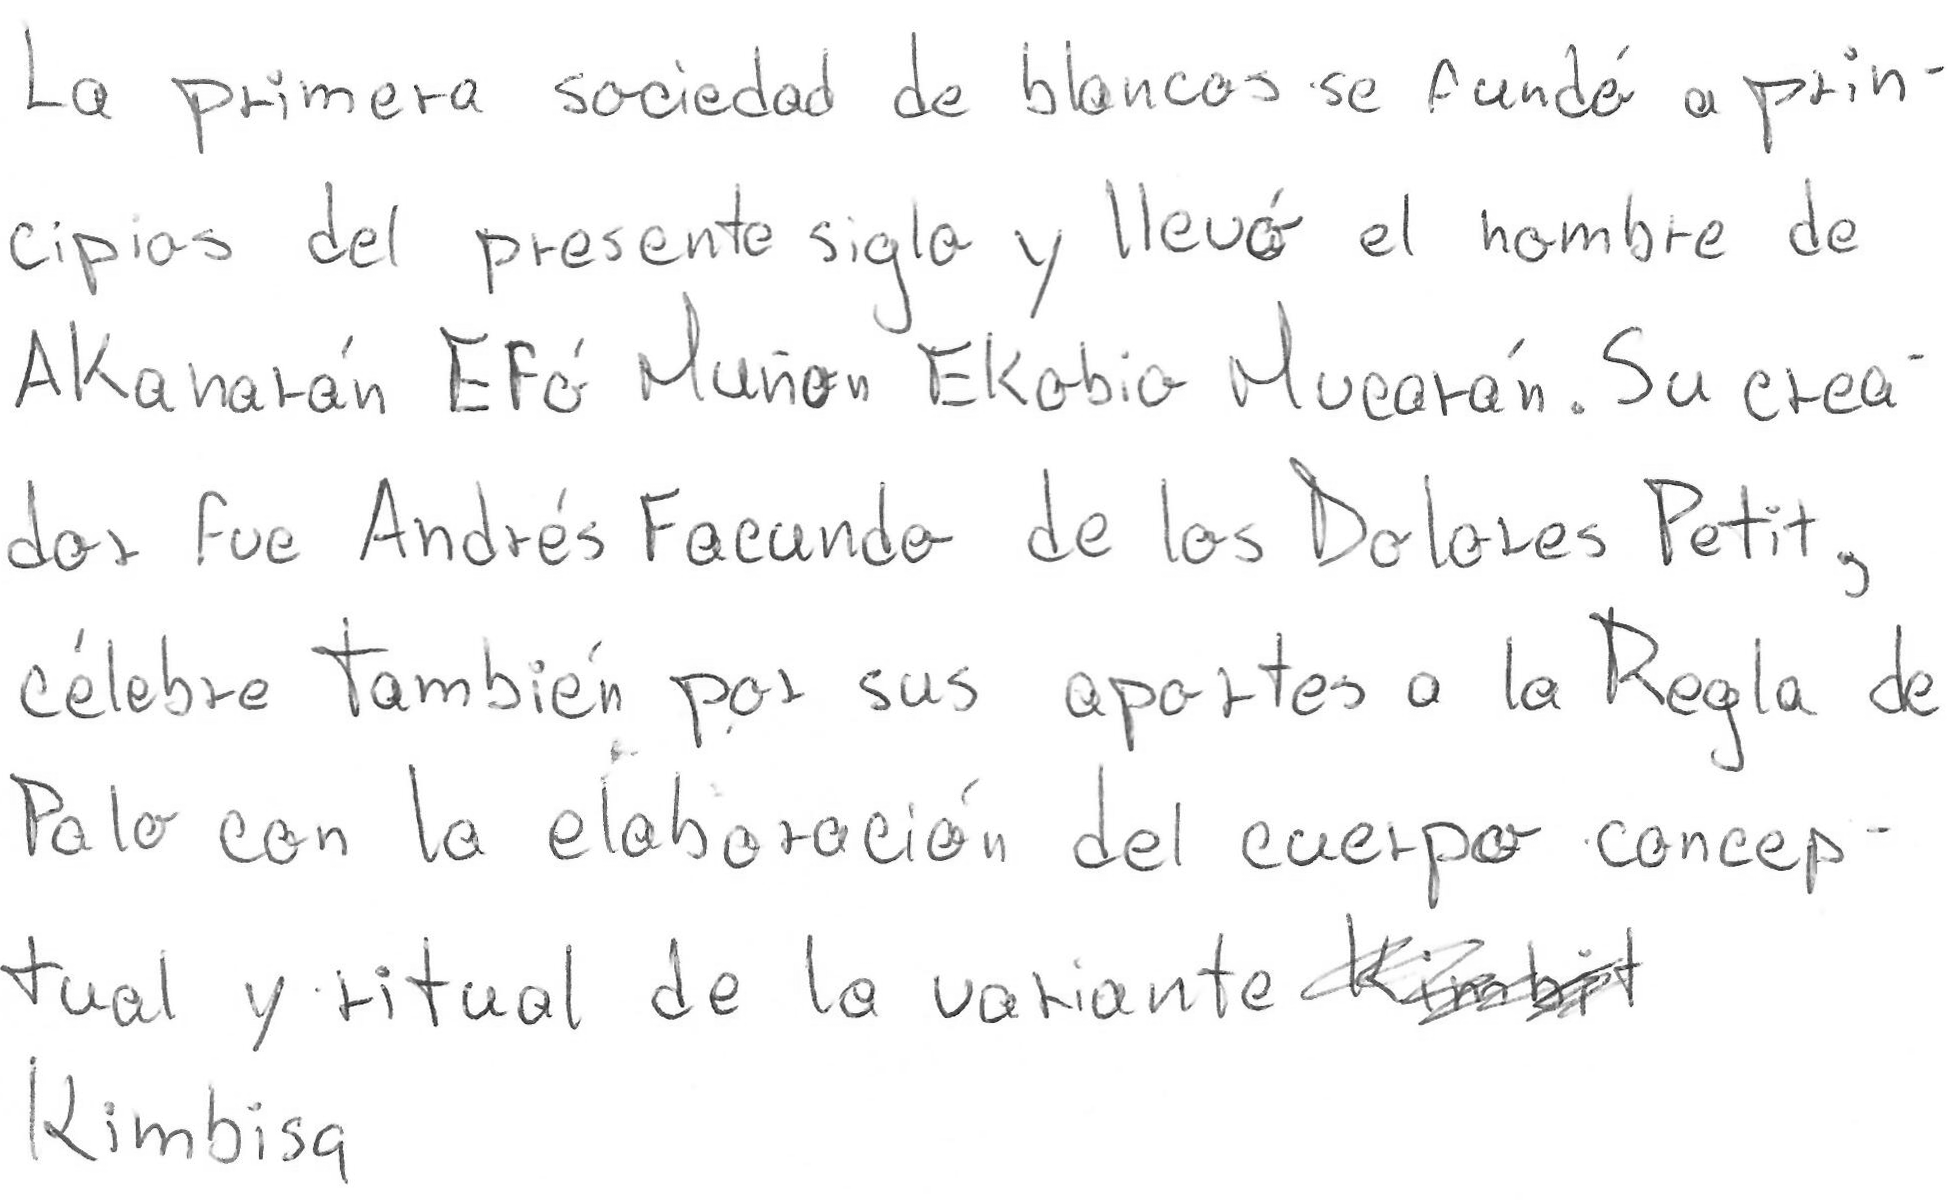 La primera sociedad de blancos se fundó a prin-
cipios del presente siglo y llevó el nombre de
AKanarán EFó Muñon EKobio Mucarán. Su crea-
dor fue Andrés Facundo de los Dolores Petit,
célebre también por sus aportes a la Regla de
Palo con la elaboración del cuerpo concep-
tual y ritual de la variante
Kimbisa